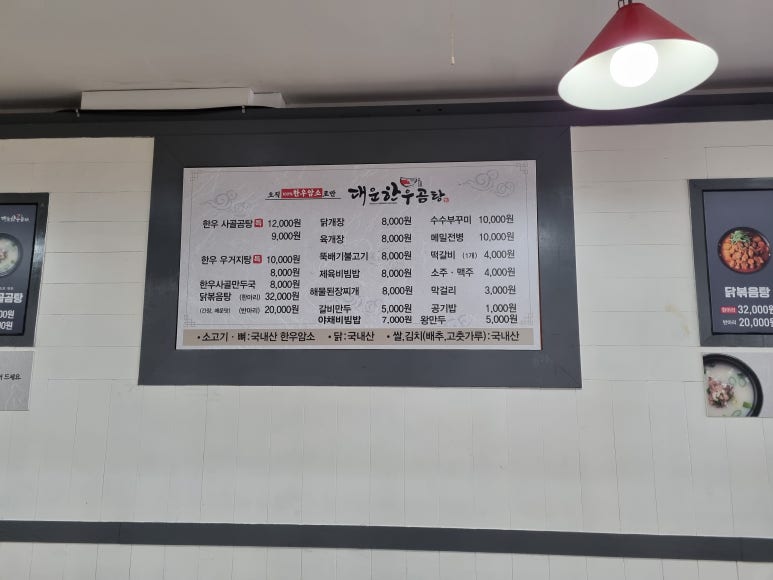 오직 100%한우암소로만 대운한우곰탕
한우 사골곰탕 특 12,000원
9,000원
한우 우거지탕 특 10,000원
8,000원
한우사골만두국 8,000원
닭볶음탕 (한마리) 32,000원
(간장, 매운맛) (반마리) 20,000원
닭개장 8,000원
육개장 8,000원
뚝배기불고기 8,000원
제육비빔밥 8,000원
해물된장찌개 8,000원
갈비만두 5,000원
야채비빔밥 7,000원
수수부꾸미 10,000원
메밀전병 10,000원
떡갈비 (1개) 4,000원
소주 · 맥주 4,000원
막걸리 3,000원
공기밥 1,000원
왕만두 5,000원
• 소고기 · 뼈 : 국내산 한우암소 • 닭 : 국내산 • 쌀,김치(배추,고춧가루) : 국내산
대운한우곰탕
골곰탕
00원
00원
드세요
닭볶음탕
한마리 32,000원
반마리 20,000